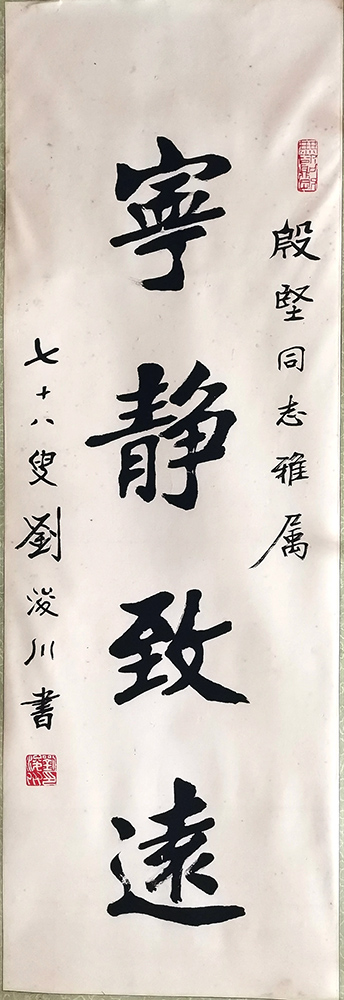 殷堅同志雅属
寧靜致遠
七十八叟劉浚川書